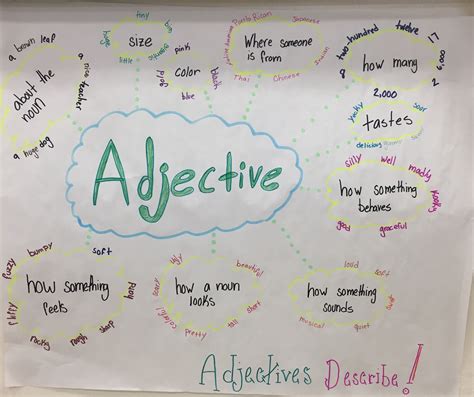 tiny
big
huge
size
little
gigantic
pink
gold
color
black
blue
Puerto Rican
Japanese
Where someone
is from
Thai
Chinese
two hundred
twelve
17
how many
8
2,000
a brown leaf
a nice teacher
about the
noun
a huge dog
Adjective
yucky
sour
tastes
delicious
silly
well
madly
how something
behaves
good
graceful
bumpy
soft
fuzzy
how something
feels
fluffy
rocky
rough
sharp
ugly
beautiful
scary
how a noun
looks
colorful
pretty
tall
short
loud
soft
how something
sounds
musical
quiet
Adjectives Describe!